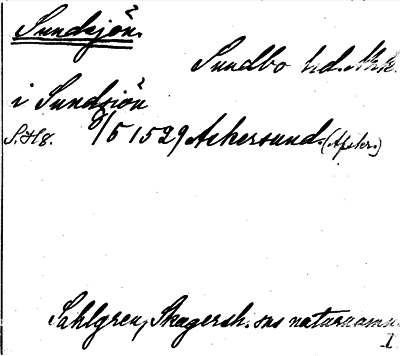 Sundsjön.
Sundbo hd. Nrk.
i Sundsiön
S. H 8. 8/5 1529 Askersund. (Afskr.)
Sahlgren, Skagersh. sns naturnamn.
I